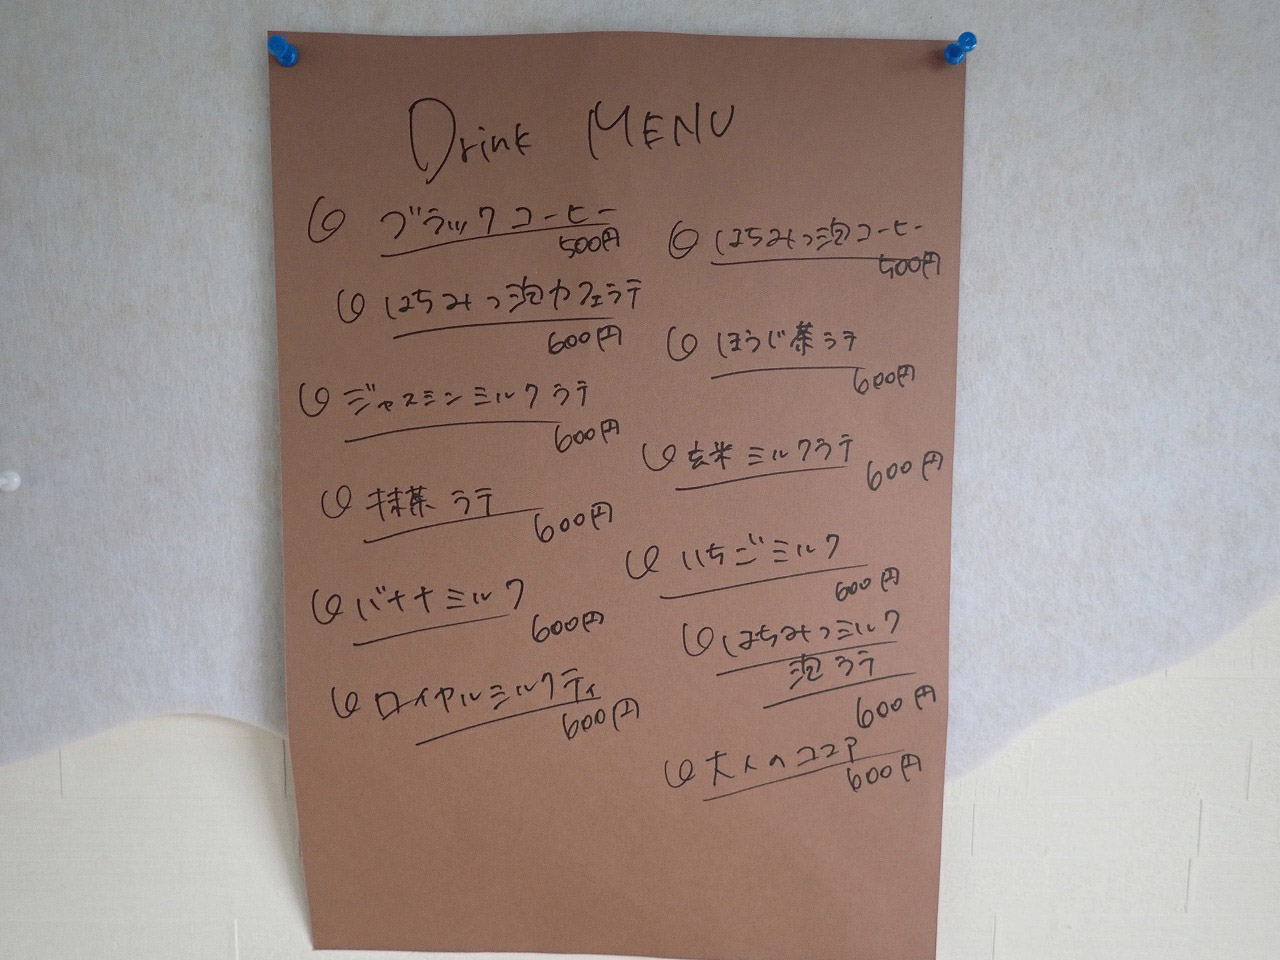 Drink MENU
ブラックコーヒー
500円
はちみつ泡カフェラテ
600円
ジャスミンミルクラテ
600円
抹茶ラテ
600円
バナナミルク
600円
ロイヤルミルクティ
600円
はちみつ泡コーヒー
500円
ほうじ茶ラテ
600円
玄米ミルクラテ
600円
いちごミルク
600円
はちみつミルク
泡ラテ
600円
大人のココア
600円